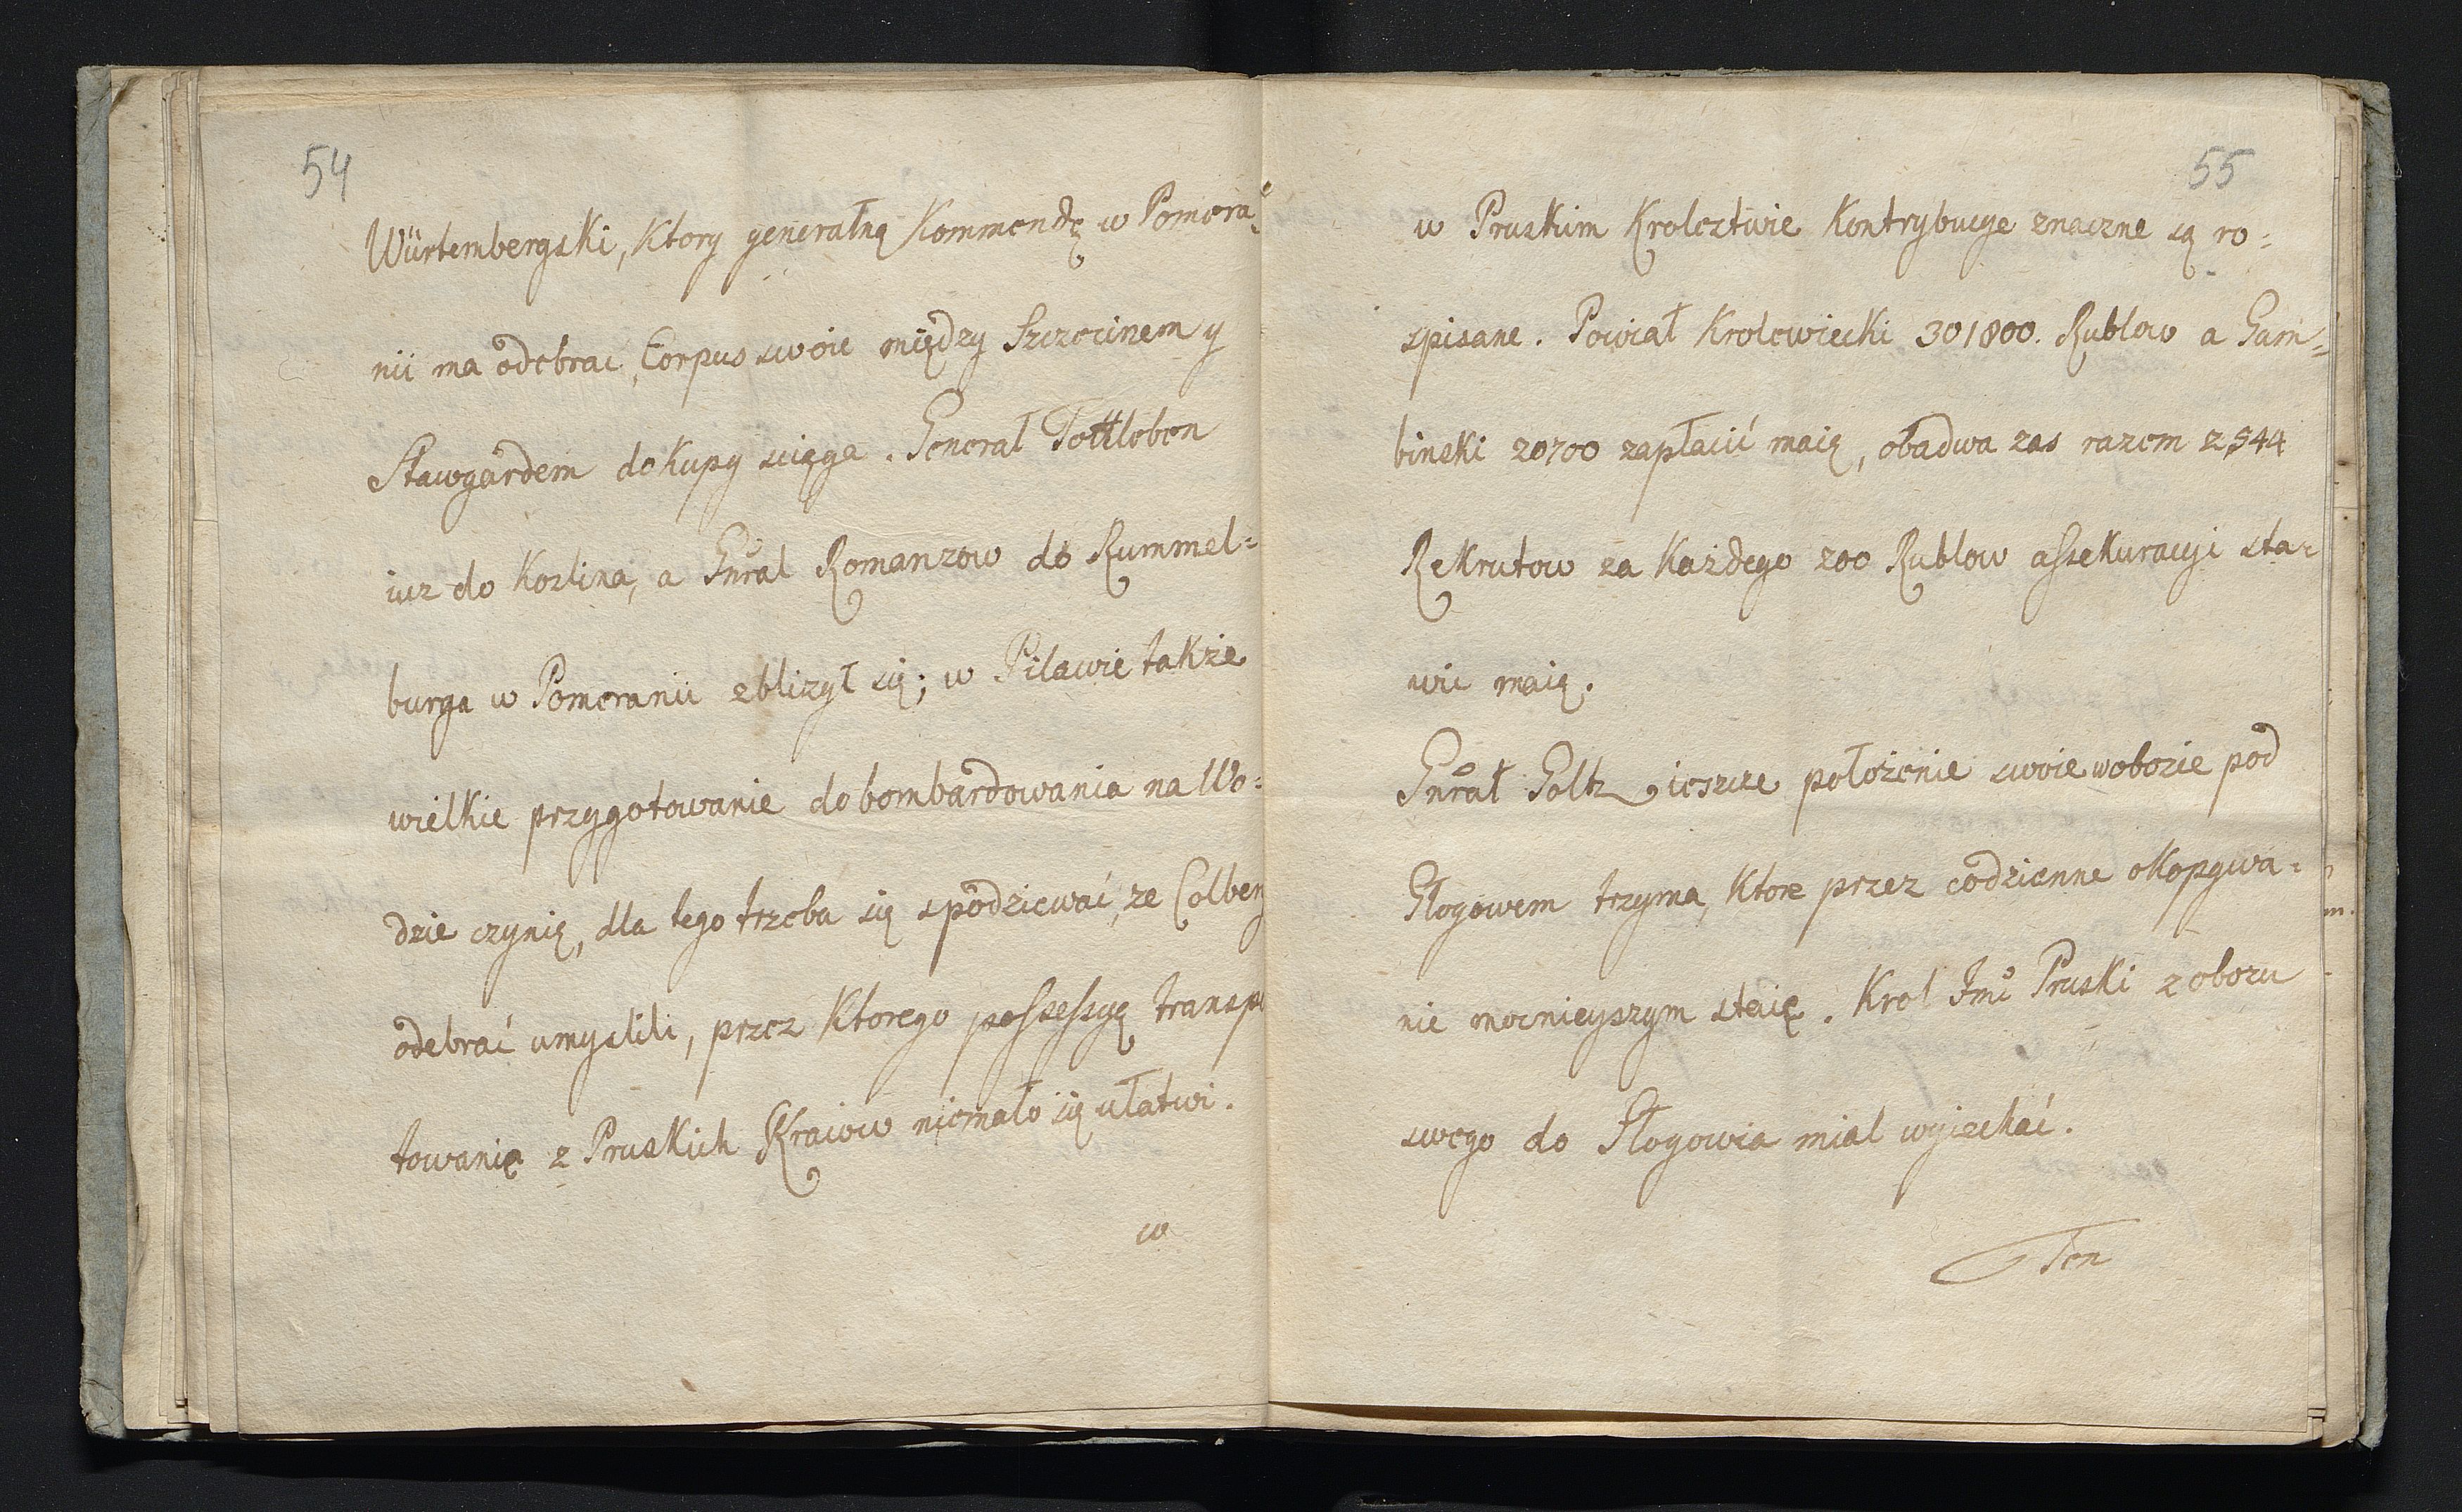 54
Würtembergski, Ktory generałną Kommendę w Pomera=
nii ma odebrac, Corpus swoie między Szczecinem y
Stawgardem do Kupy sciąga. General Tottleben
iuz do Kozlina, a Gnral Romanzow do Rummel=
burga w Pomeranii zblizył się; w Pilawie także
wielkie przygotowanie do bombardowania na Wo=
dzie czynią, dla tego trzeba się spodziewać, ze Colberg
odebrać umyslili, przez Ktorego possessyą transpo
towania z Pruskich Kraiow niemało się ułatwi.
w
55
w Pruskim Krolestwie Kontrybucye znaczne są ro=
spisane. Powiat Krolewiecki 301800. Rublow a Gam=
binski 20700 zapłacić maią, obadwa zas razem 2544
Rekrutow za Każdego 200 Rublow assekuracyi sta=
wic maią.
Gnrał Goltz ieszcze położenie swoie w obozie pod
Głogowem trzyma, Ktore przez codzienne okopywa=
nie mocnieyszym staię. Krol Jmć Pruski z obozu
swego do Głogowia mial wyiechać.
Ten